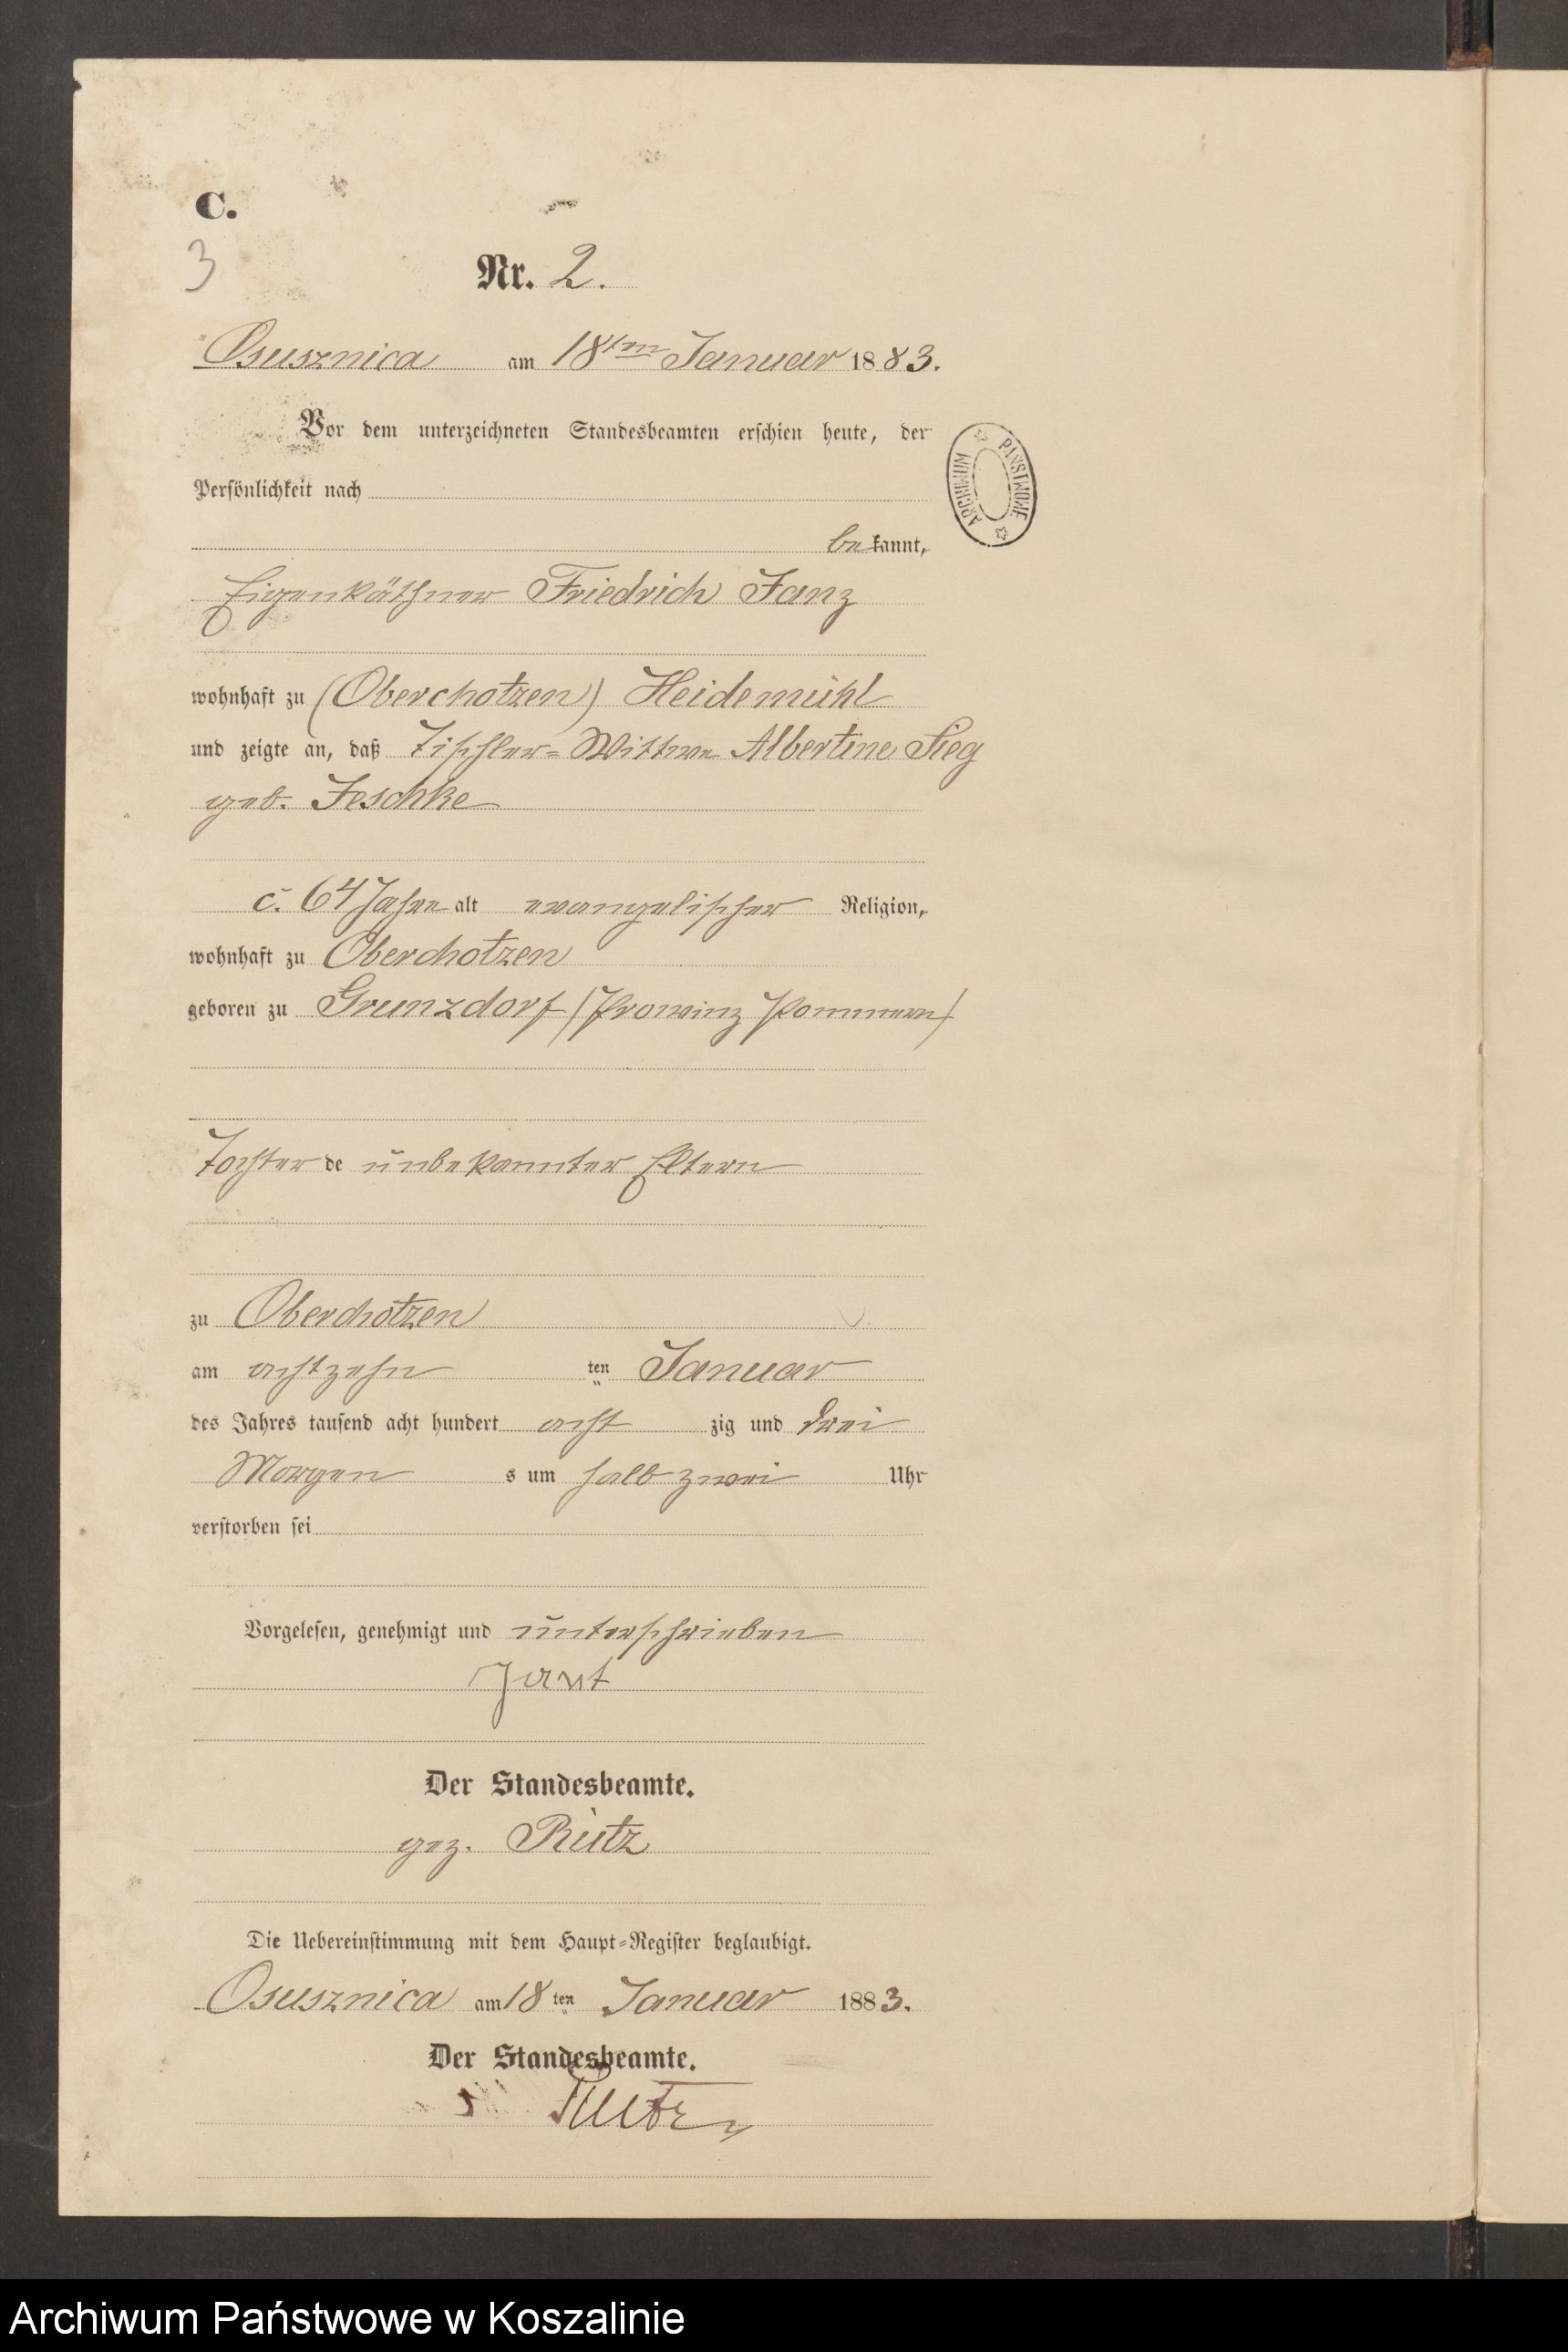 C.
3
Nr. 2.
Osusznica am 18ten Januar 1883.
Vor dem unterzeichneten Standesbeamten erschien heute, der
Persönlichkeit nach
bekannt,
Eigenkäthner Friedrich Janz
wohnhaft zu (Oberchotzen) Heidemühl
und zeigte an, daß Tischler-Wittwe Albertine Sieg
geb. Jeschke
c. 64 Jahre alt evangelischer Religion,
wohnhaft zu Oberchotzen
geboren zu Grunzdorf (Prowinz Pommern)
Tochter de unbekannter Eltern
zu Oberchotzen
am achtzehn ten Januar
des Jahres tausend acht hundert acht zig und drei
Morgen s um halb zwei Uhr
verstorben sei
Vorgelesen, genehmigt und unterschrieben
Der Standesbeamte.
gez. Rutz
Die Uebereinstimmung mit dem Haupt-Register beglaubigt.
Osusznica am 18 ten Januar 1883.
Der Standesbeamte.
Rutz
ARCHIWUM PAŃSTWOWE
Archiwum Państwowe w Koszalinie